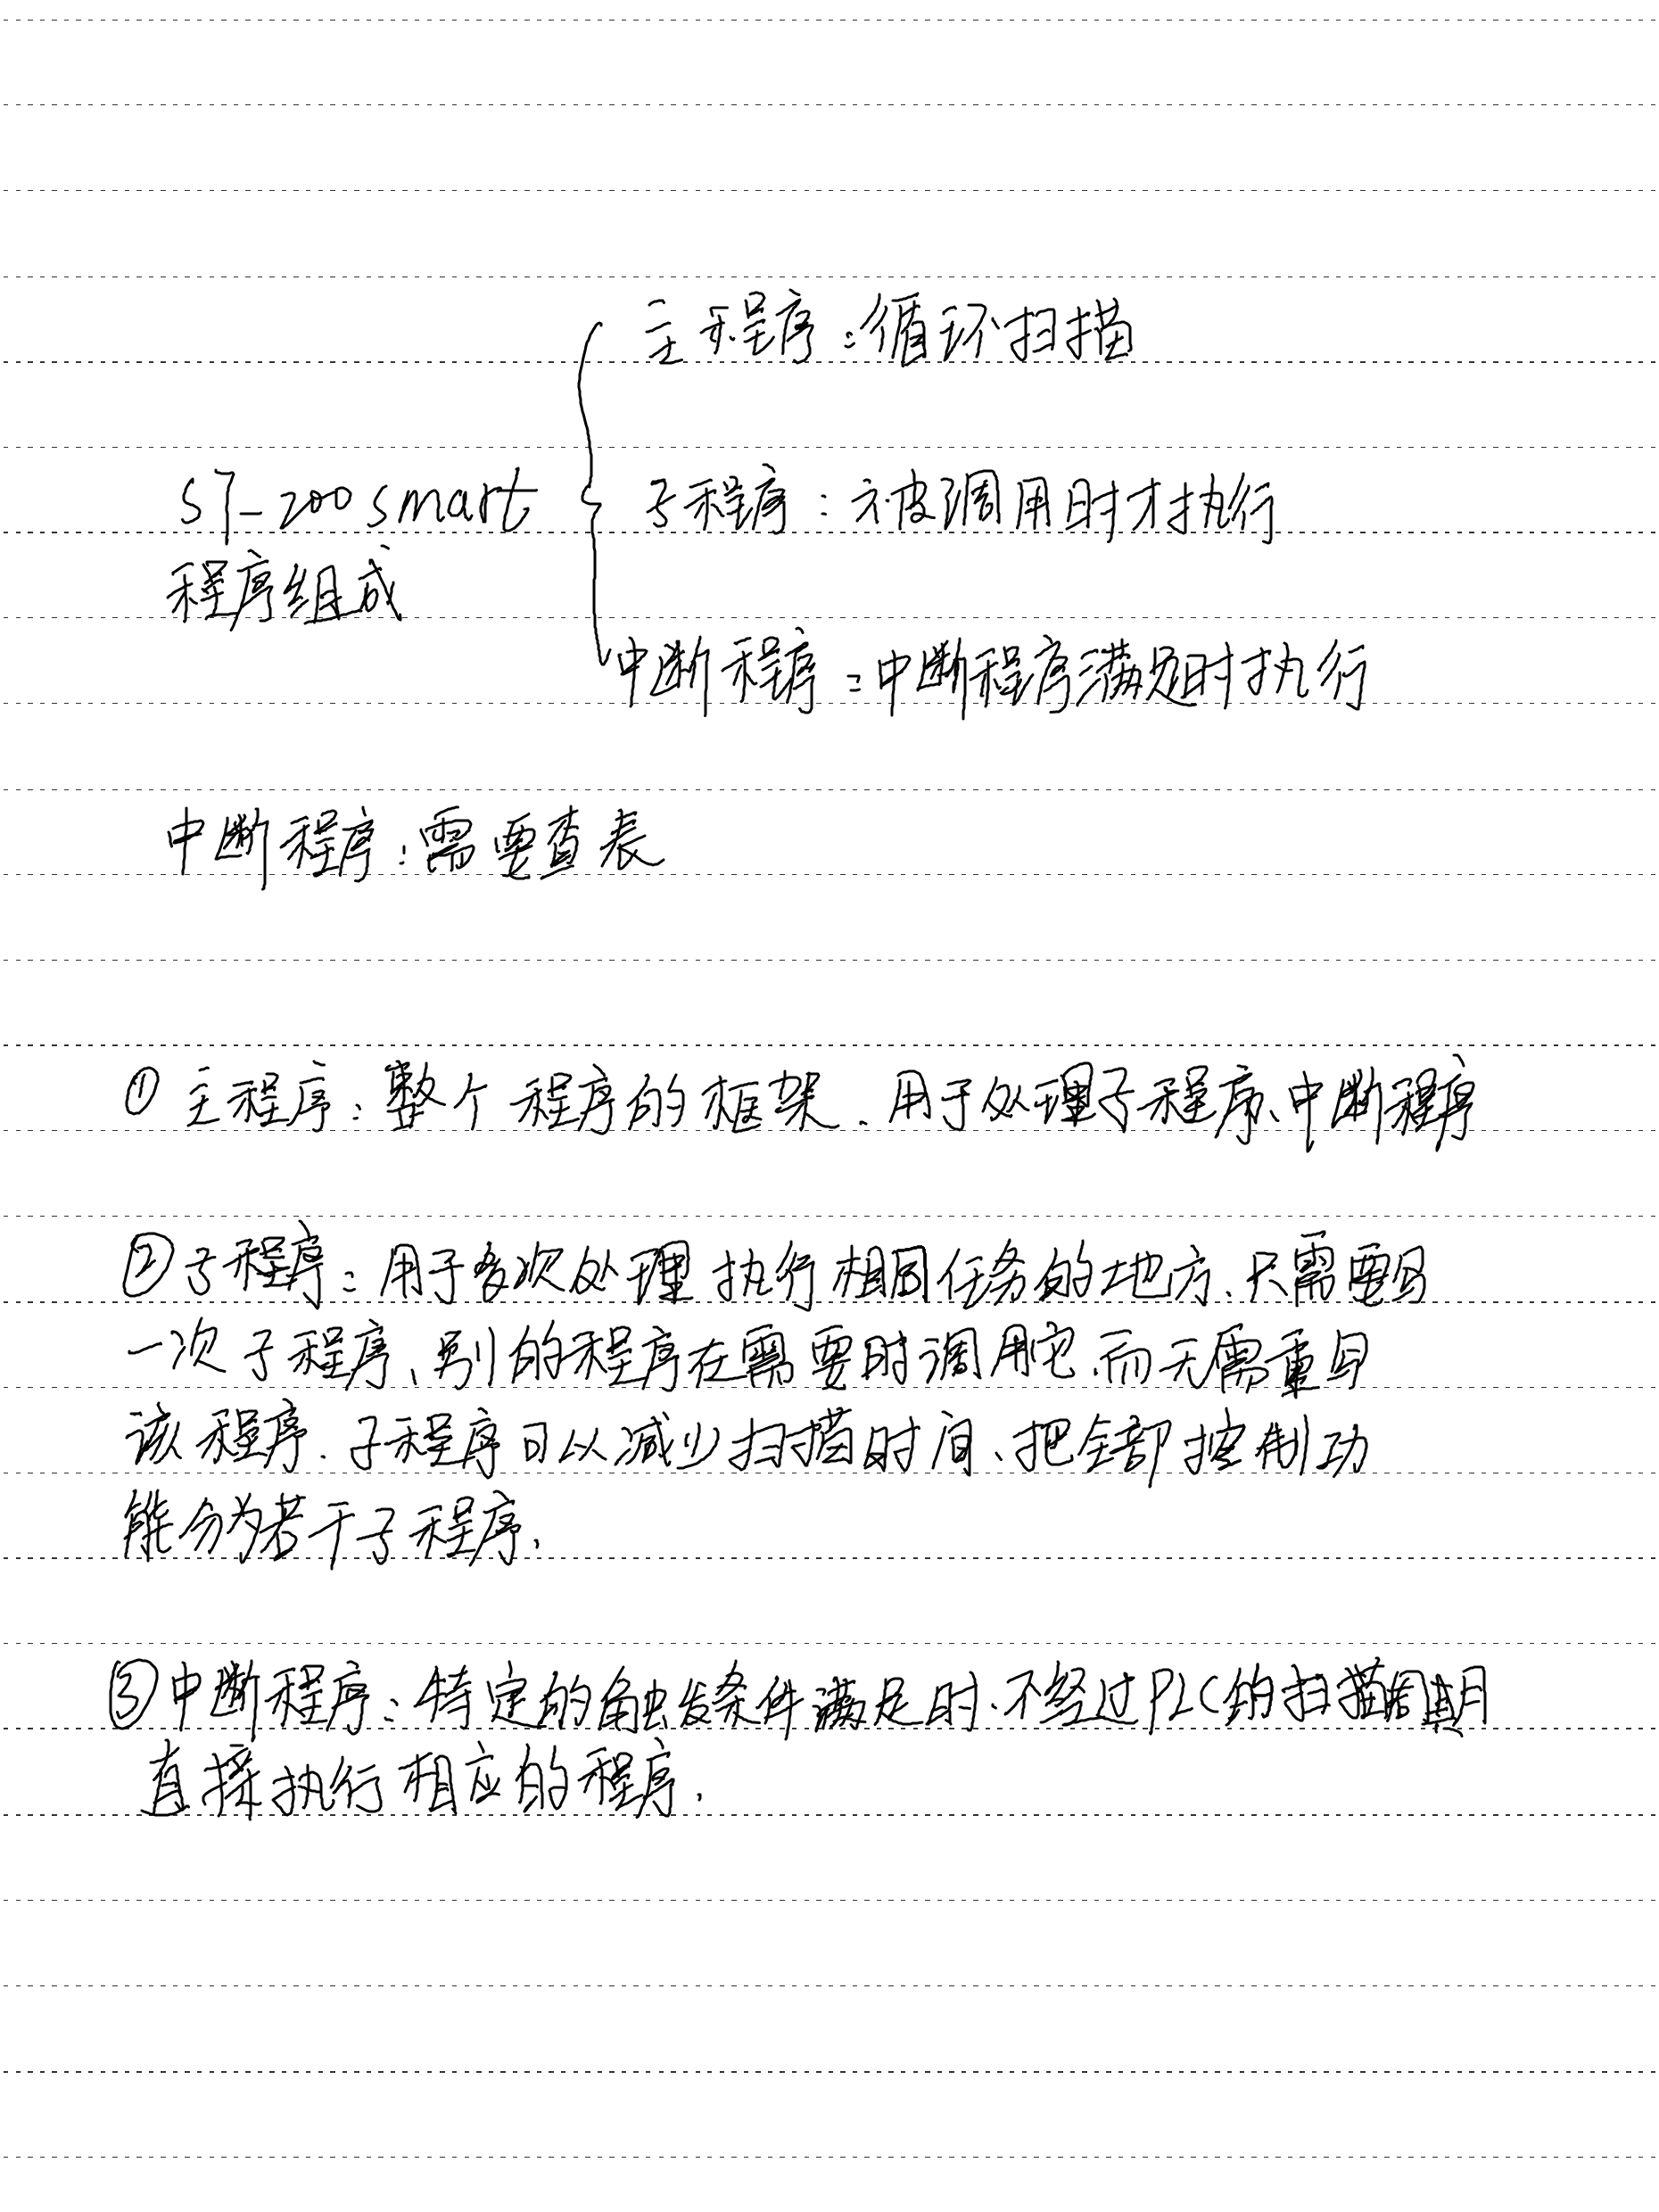 主程序：循环扫描
S7-200 smart
子程序：被调用时才执行
程序组成
中断程序：中断程序满足时执行
中断程序：需要查表
① 主程序：整个程序的框架．用于处理子程序、中断程序
②子程序：用于多次处理 执行相同任务的地方．只需要写
一次子程序、别的程序在需要时调用它．而无需重写
该程序．子程序可以减少扫描时间、把全部控制功
能分为若干子程序．
③中断程序：特定的触发条件满足时．不经过PLC的扫描周期
直接执行相应的程序．